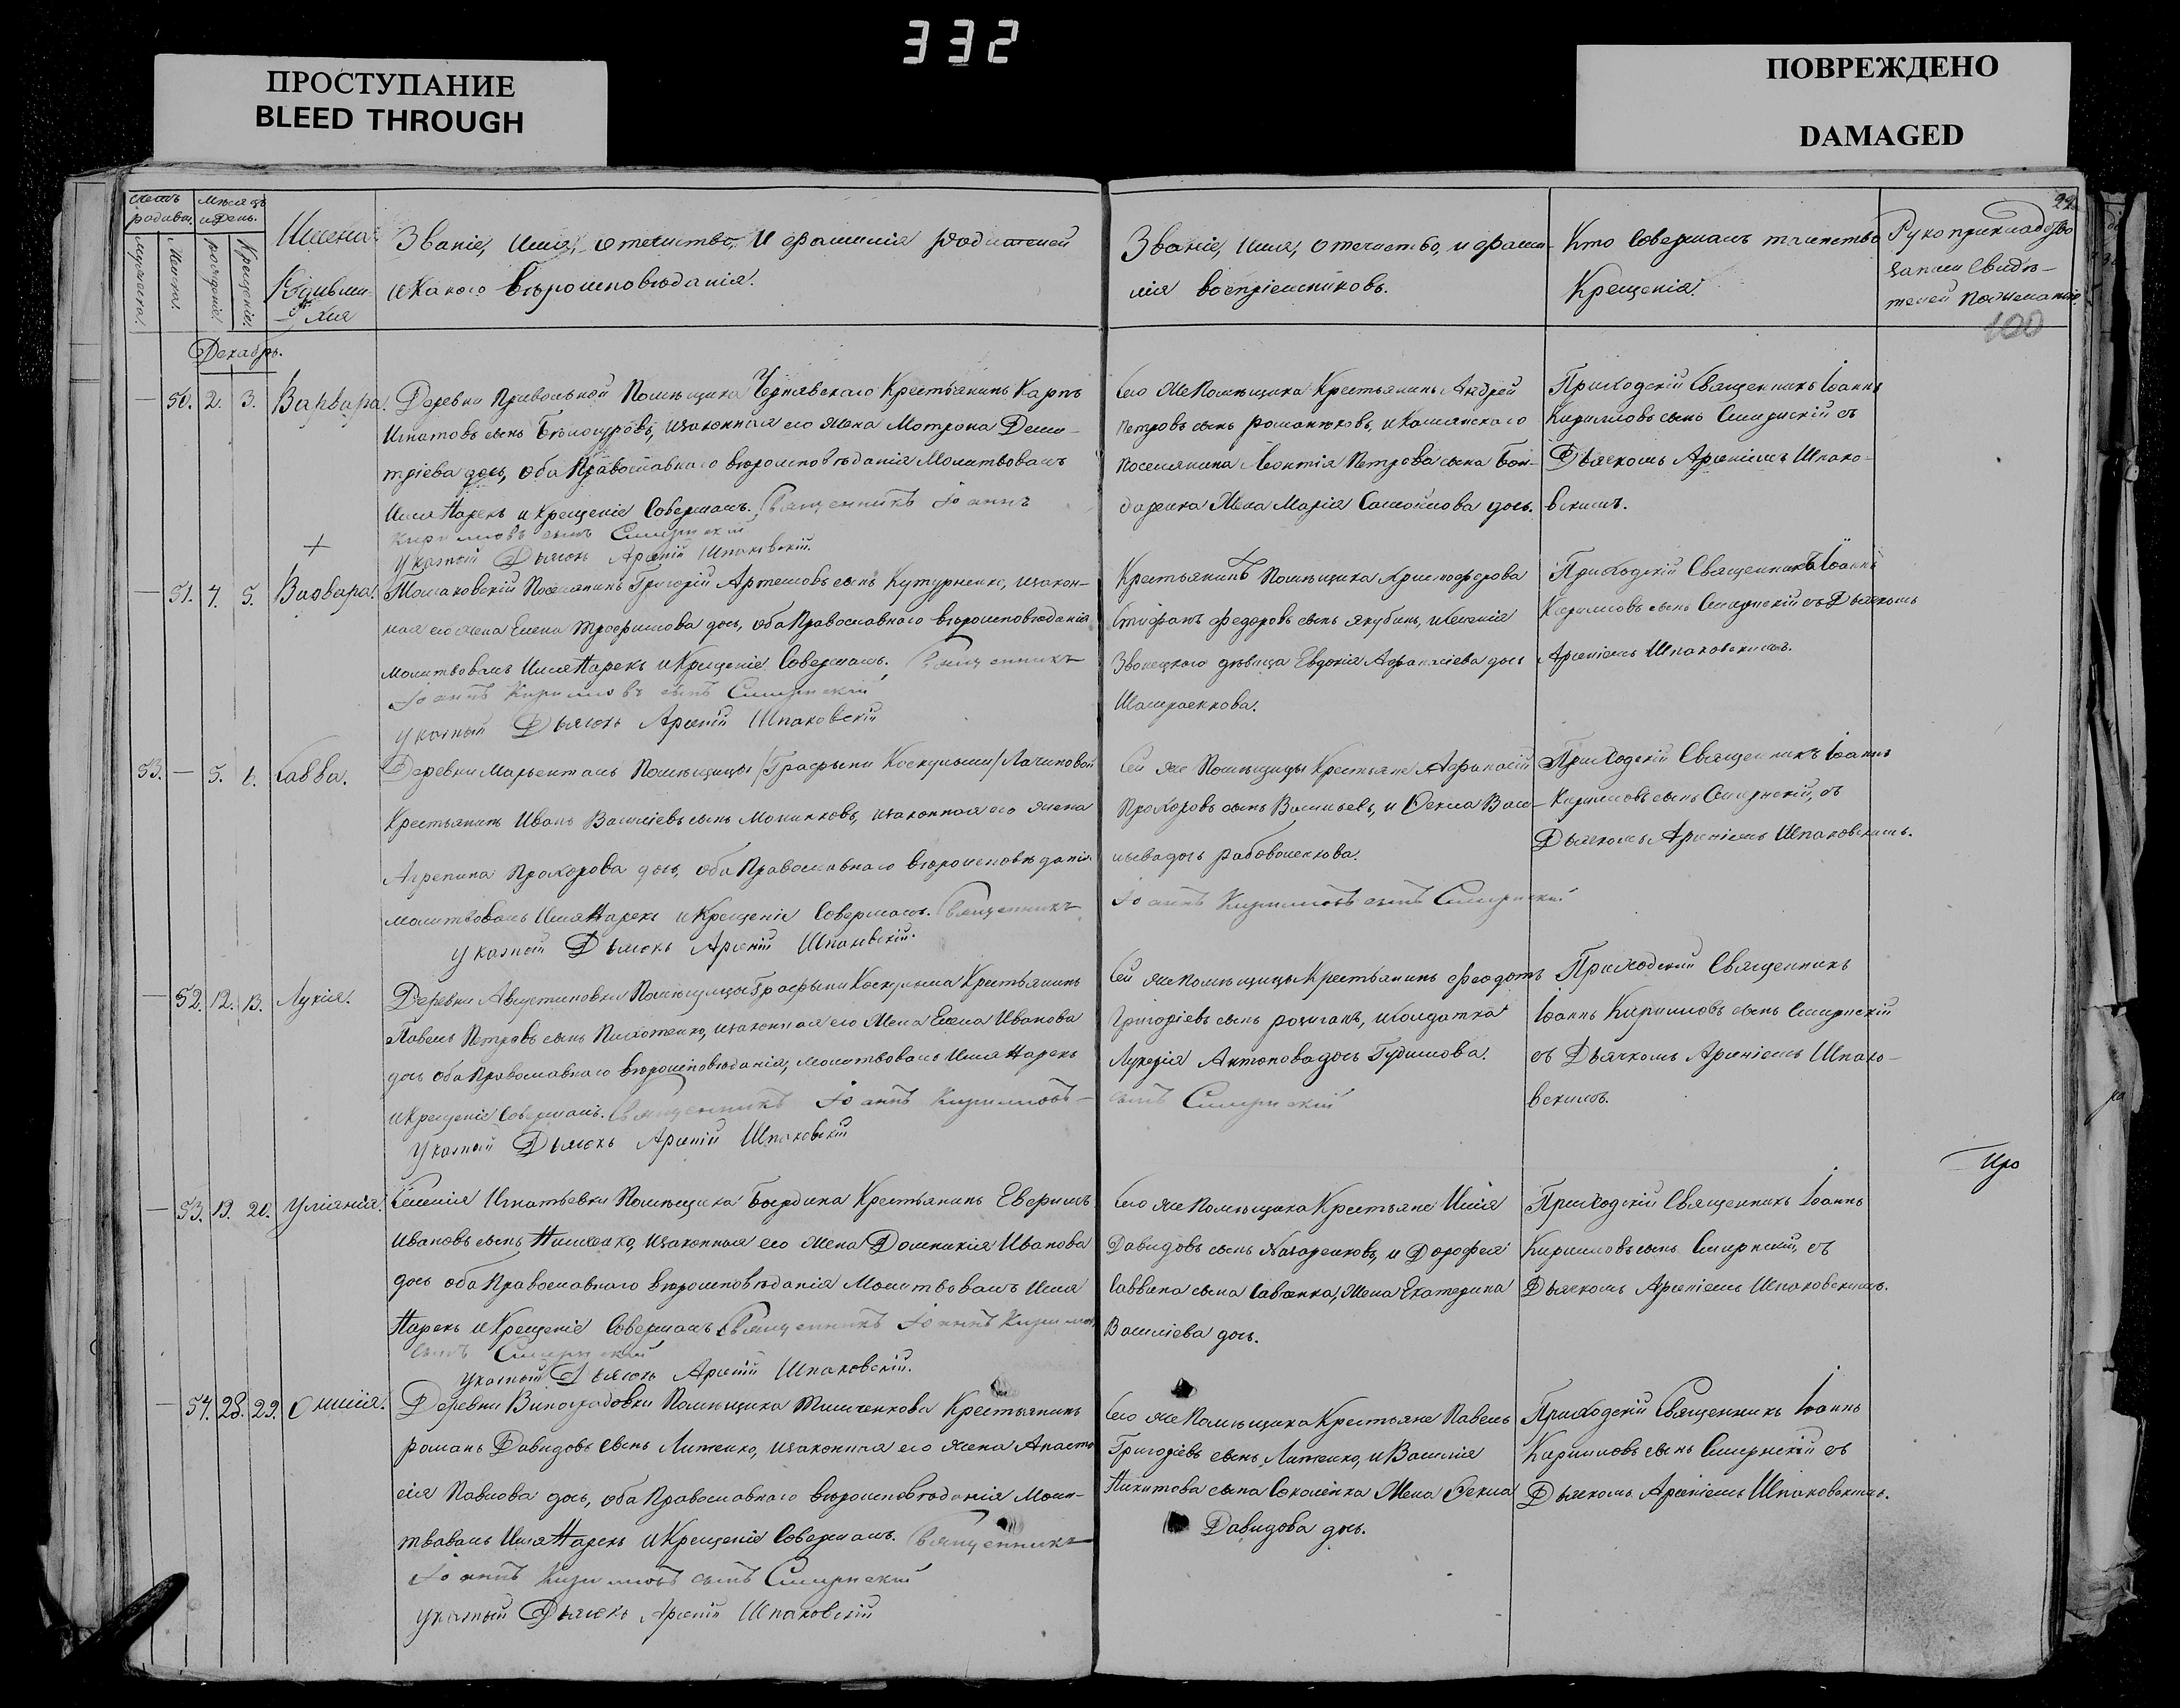 332
ПРОСТУПАНИЕ
BLEED THROUGH
ПОВРЕЖДЕНО
DAMAGED
Имена
Званіе, Имя, отечество, и фамилія родителей
и какого вѣроисповѣданія.
Званіе, имя, отечество, и фами-
лія воспріемниковъ.
Кто совершалъ таинство
Крещенія.
Рукоприкладство
100
Декабрь.
— 50. 2. 3. Варвара.
Деревни Привольной Помѣщика Чернявского Крестьянинъ Карпъ
Игнатовъ сынъ изаконная его жена Мотрона Дими-
тріева дочь, оба Православнаго вѣроисповѣданія Молитвовалъ
Имя Нарекъ и Крещеніе Совершалъ. Священникъ Іоаннъ
Кирилловъ сынъ Смирнскій
указный Дьячокъ Арсеній Шпаковскій.
Сего же Помѣщика Крестьянинъ Андрей
Петровъ сынъ
поселянина Леонтія Петрова сына Бон-
даренка Жена Марія Самойлова дочь.
Приходскій Священникъ Іоаннъ
Кирилловъ сынъ Смирнскій съ
Дьячкомъ Арсеніемъ Шпако-
вскимъ.
— 51. 4. 5. Варвара.
Поселянинъ Григорій Артемовъ сынъ изакон-
ная его жена Елена Трофимова дочь, оба Православнаго вѣроисповѣданія
молитвовалъ Имя Нарекъ и Крещеніе Совершалъ. Священникъ
Іоаннъ Кирилловъ сынъ Смирнскій
указный Дьячокъ Арсеній Шпаковскій
Крестьянинъ Помѣщика Христофорова
Стефанъ Федоровъ сынъ Якубинъ, и Селенія
Звонецкого дѣвица Евдокія Афанасіева дочь
Приходскій Священникъ Іоаннъ
Кирилловъ сынъ Смирнскій съ Дьячкомъ
Арсеніемъ Шпаковскимъ.
53. — 5. 6. Савва.
Деревни Помѣщицы
Крестьянинъ Иванъ Василіевъ сынъ изаконная его жена
Агрепина Прохорова дочь, оба Православнаго вѣроисповѣданія
молитвовалъ Имя Нарекъ и Крещеніе Совершалъ. Священникъ
указный Дьячокъ Арсеній Шпаковскій.
Сей же Помѣщицы Крестьяне Афанасій
Прохоровъ сынъ Васильевъ, и Фекла Васи-
льева дочь
Іоаннъ Кирилловъ сынъ Смирнскій
Приходскій Священникъ Іоаннъ
Кирилловъ сынъ Смирнскій, съ
Дьячкомъ Арсеніемъ Шпаковскимъ.
— 52. 12. 13. Лукія.
Деревни Августиновки Крестьянинъ
Павелъ Петровъ сынъ изаконная его Жена Елена Иванова
дочь оба Православнаго вѣроисповѣданія, молитвовалъ Имя Нарекъ
и Крещеніе Совершалъ. Священникъ Іоаннъ Кирилловъ
указный Дьячокъ Арсеній Шпаковскій
Сей же помѣщицы Крестьянинъ Феодотъ
Григоріевъ сынъ и солдатка
Лукерія Антонова дочь
сынъ Смирнскій
Приходскій Священникъ
Іоаннъ Кирилловъ сынъ Смирнскій
съ Дьячкомъ Арсеніемъ Шпако-
вскимъ.
Про
— 53. 19. 20. Уліянія.
Селенія Игнатьевки Помѣщика Крестьянинъ
Ивановъ сынъ изаконная его жена Домникія Иванова
дочь оба Православнаго вѣроисповѣданія Молитвовалъ Имя
Нарекъ и Крещеніе Совершалъ Священникъ Іоаннъ
сынъ Смирнскій
указный Дьячокъ Арсеній Шпаковскій.
Сего же Помѣщика Крестьяне Илія
Давидовъ сынъ Назаренковъ, и Дорофея
Саввина сына Савченка, Жена Екатерина
Василіева дочь.
Приходскій Священникъ Іоаннъ
Кирилловъ сынъ Смирнскій, съ
Дьячкомъ Арсеніемъ Шпаковскимъ.
— 54. 28. 29.
Деревни Виноградовки Помѣщика Крестьянинъ
романъ Давидовъ сынъ изаконная его жена Анаста-
сія Павлова дочь, оба Православнаго вѣроисповѣданія Моли-
твовалъ Имя Нарекъ и Крещеніе Совершалъ. Священникъ
Іоаннъ Кирилловъ сынъ Смирнскій
указный Дьячокъ Арсеній Шпаковскій
Сего же Помѣщика Крестьяне Павелъ
Григоріевъ сынъ и Василія
Никитова сына Жена Фекла
Давидова дочь.
Приходскій Священникъ Іоаннъ
Кирилловъ сынъ Смирнскій съ
Дьячкомъ Арсеніемъ Шпаковскимъ.